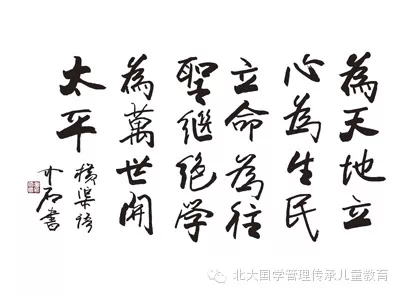 為天地立
心為生民
立命為往
聖繼絕學
為萬世開
太平
橫渠語
石書
北大国学管理传承儿童教育